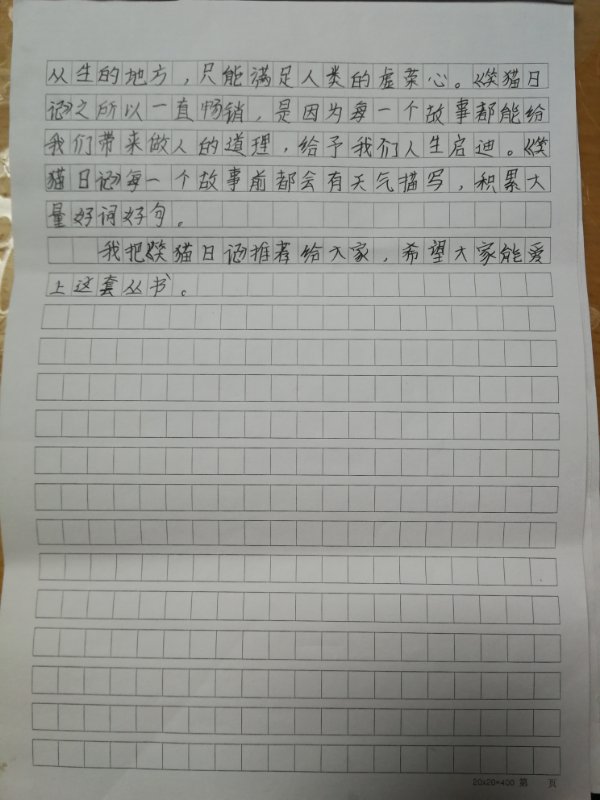 从生的地方，只能满足人类的虚荣心。《笑猫日
记》之所以一直畅销，是因为每一个故事都能给
我们带来做人的道理，给予我们人生启迪。《笑
猫日记》每一个故事前都会有天气描写，积累大
量好词好句。
我把《笑猫日记》推荐给大家，希望大家能爱
上这套丛书。
20×20=400 第 页